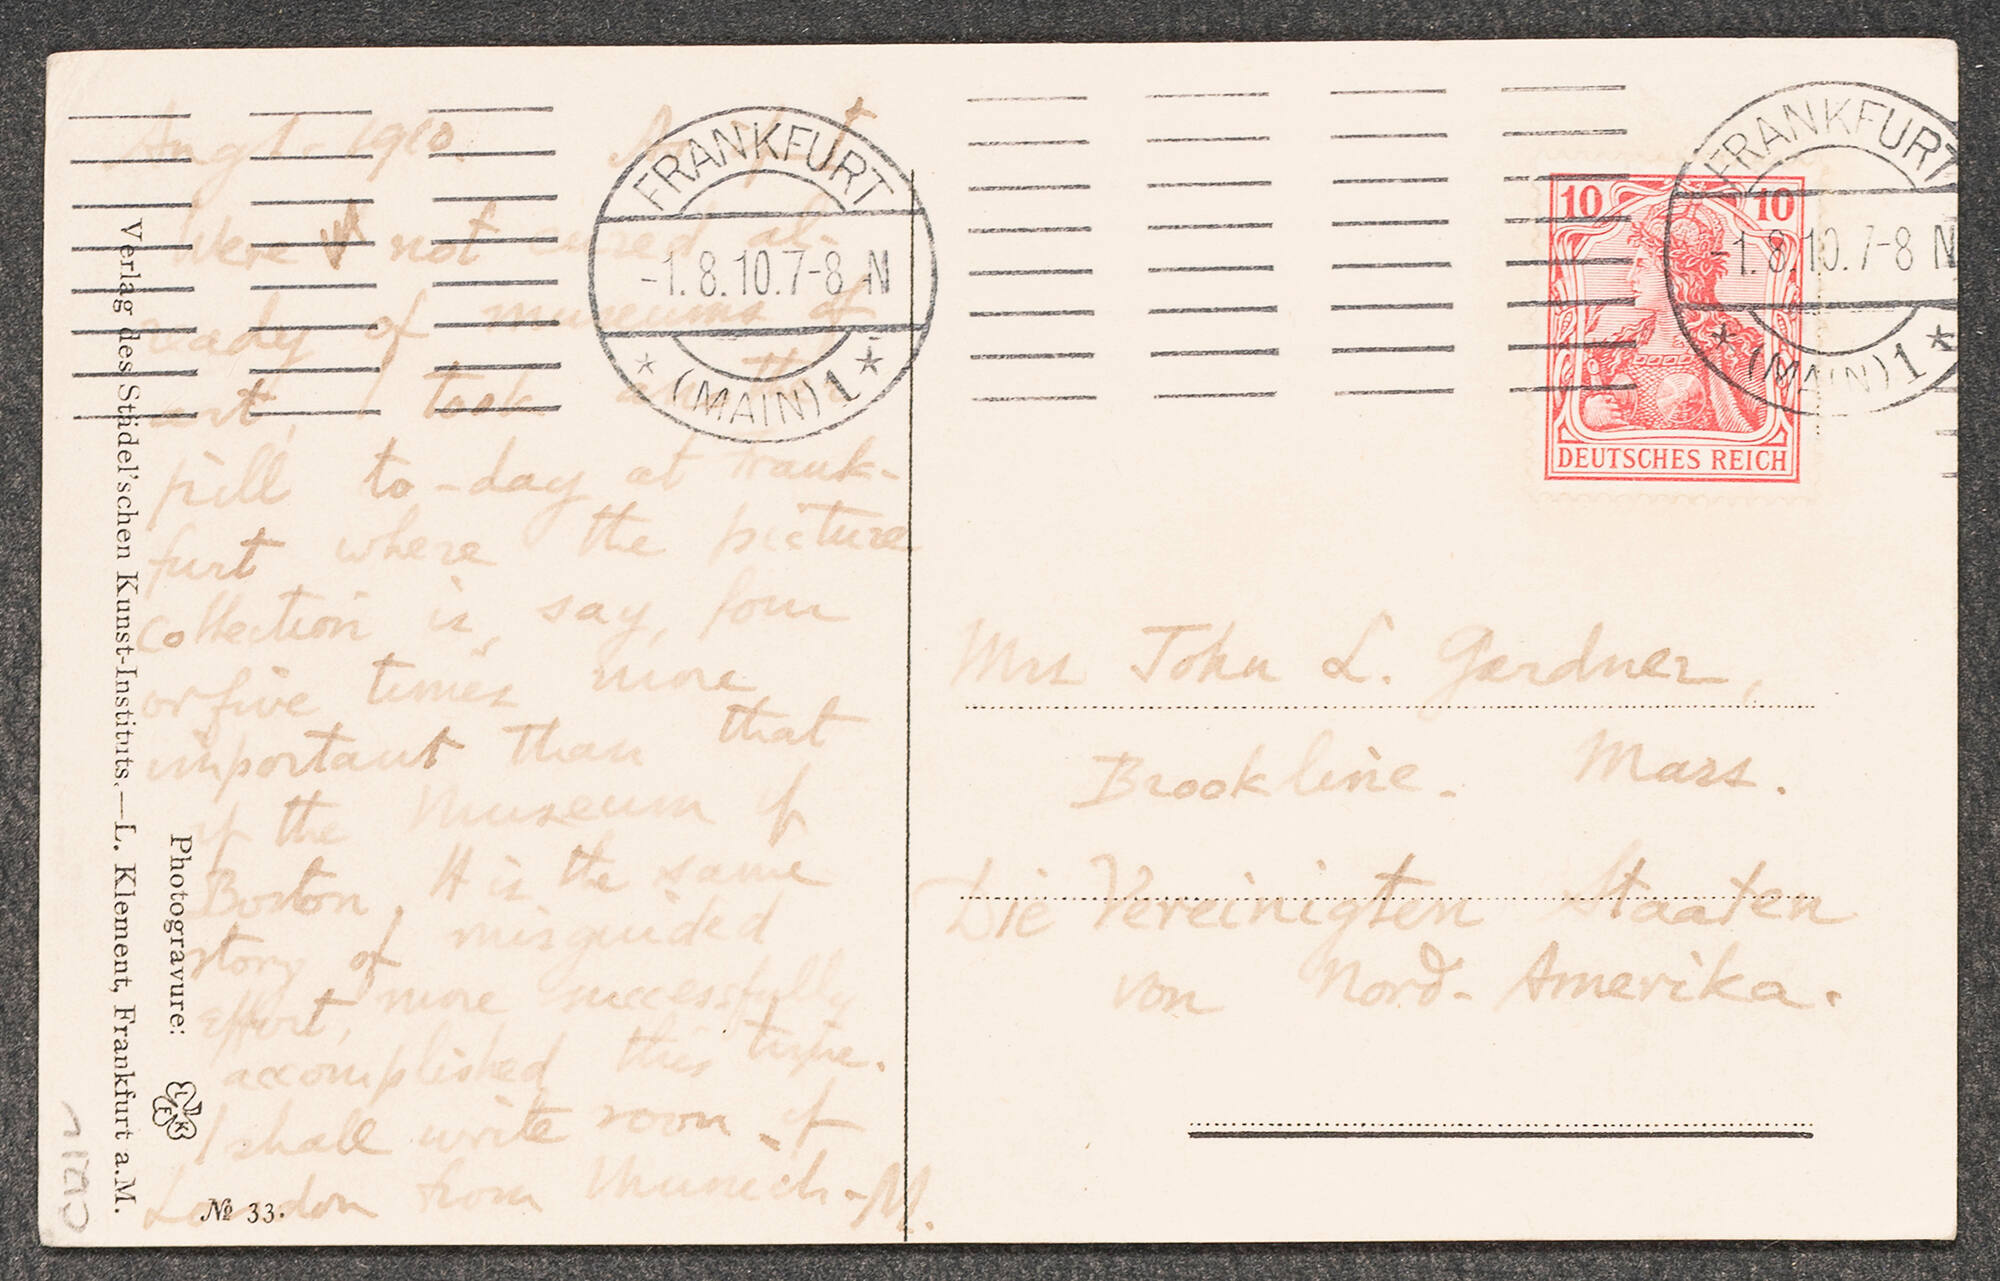 Aug 1 - 1910.
Were not cured al-
ready of museums of
art, I took another
pill to-day at Frank-
furt where the picture
collection is, say, four
or five times more
important than that
of the Museum of
Boston. It is the same
story of misguided
effort, more successfully
accomplished this time.
I shall write soon of
London from Munich. - M.
Verlag des Städel'schen Kunst-Instituts.—L. Klement, Frankfurt a.M.
Photogravure:
№ 33.
FRANKFURT
-1.8.10.7-8 N
* (MAIN) 1 *
FRANKFURT
-1.8.10.7-8 N
* (MAIN) 1 *
10 10
DEUTSCHES REICH
Mrs John L. Gardner,
Brookline. Mass.
Die Vereinigten Staaten
von Nord-Amerika.